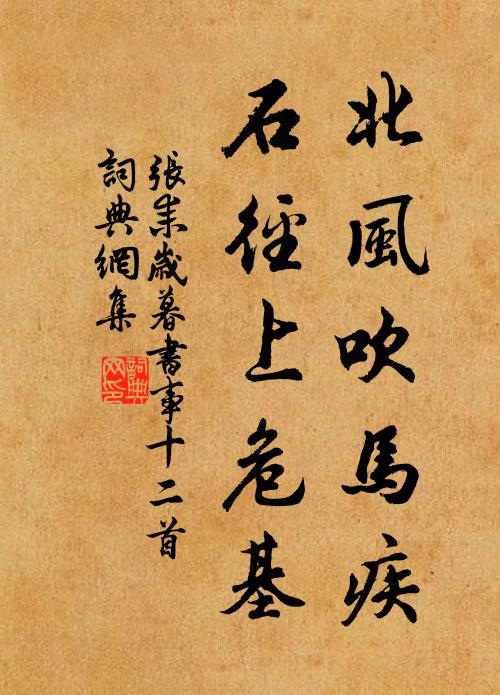 北風吹馬疾
石徑上危基
張耒歲暮書事十二首
詞典網集
詞典
网印